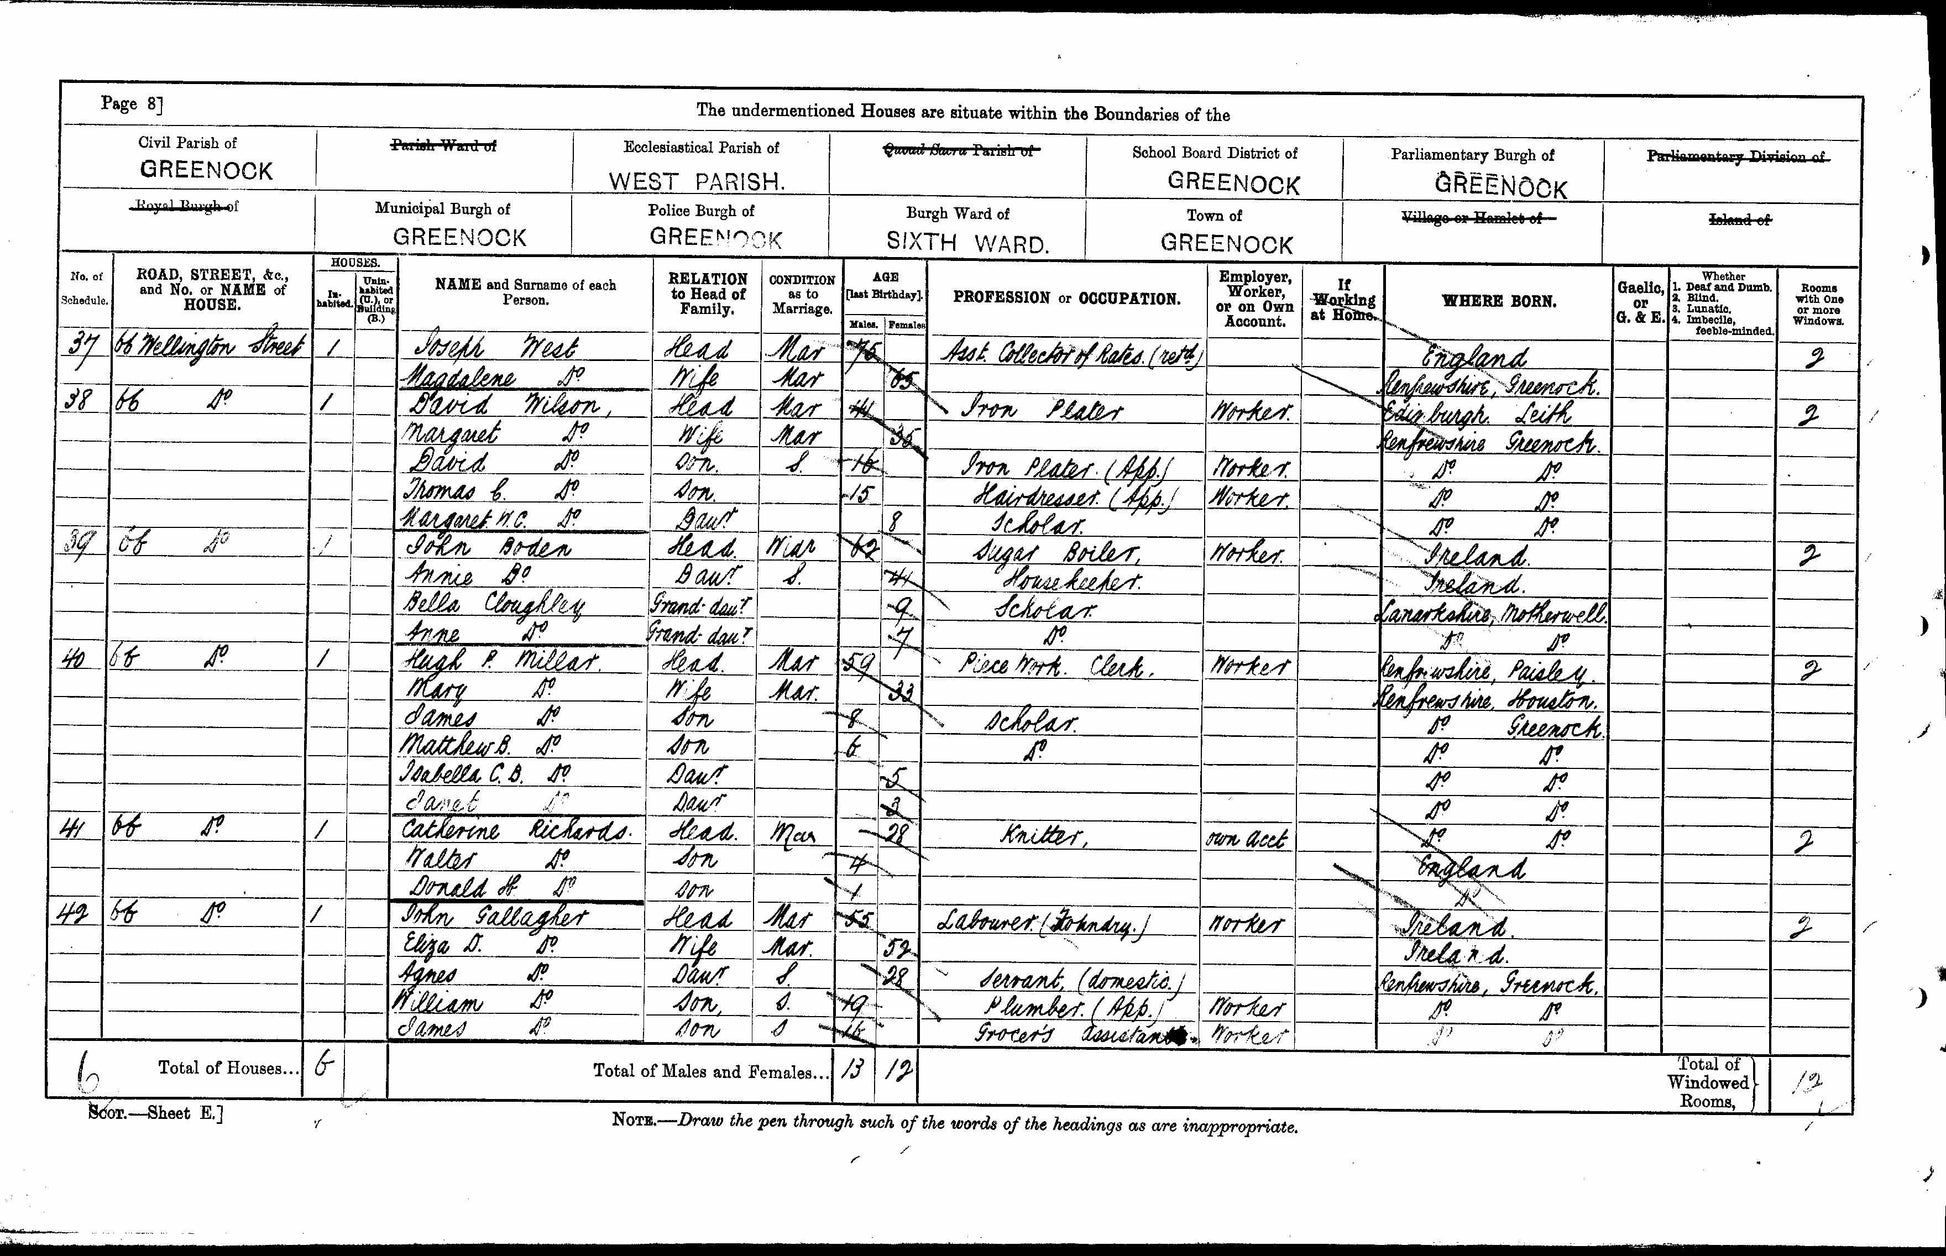 Page 8]
The undermentioned Houses are situate within the Boundaries of the
Civil Parish of GREENOCK
Parish Ward of
Ecclesiastical Parish of WEST PARISH.
Quoad Sacra Parish of
School Board District of GREENOCK
Parliamentary Burgh of GREENOCK
Parliamentary Division of
Royal Burgh of
Municipal Burgh of GREENOCK
Police Burgh of GREENOCK
Burgh Ward of SIXTH WARD.
Town of GREENOCK
Village or Hamlet of
Island of
No. of Schedule.
ROAD, STREET, &c., and No. or NAME of HOUSE.
HOUSES.
In-habited.
Unin-habited (U.), or Building (B.)
NAME and Surname of each Person.
RELATION to Head of Family.
CONDITION as to Marriage.
AGE [last Birthday].
Males.
Females
PROFESSION or OCCUPATION.
Employer, Worker, or on Own Account.
If Working at Home.
WHERE BORN.
Gaelic, or G. & E.
Whether 1. Deaf and Dumb. 2. Blind. 3. Lunatic. 4. Imbecile, feeble-minded.
Rooms with One or more Windows.
37 66 Wellington Street 1 Joseph West Head Mar 75 Asst. Collector of Rates. (retd) England 2
Magdalene Do Wife Mar 65 Renfrewshire, Greenock.
38 66 Do 1 David Wilson, Head Mar 41 Iron Plater Worker. Edinburgh Leith 2
Margaret Do Wife Mar 35 Renfrewshire Greenock.
David Do Son. S. 16 Iron Plater. (App.) Worker. Do Do
Thomas C. Do Son. 15 Hairdresser. (App.) Worker. Do Do
Margaret W.C. Do Daur 8 Scholar. Do Do
39 66 Do 1 John Boden Head. Widr 62 Sugar Boiler, Worker. Ireland. 2
Annie Do Daur S. 41 Housekeeper. Ireland.
Bella Cloughley Grand-daur 9 Scholar. Lanarkshire, Motherwell.
Anne Do Grand-daur 7 Do Do Do
40 66 Do 1 Hugh P. Millar. Head. Mar 59 Piece Work. Clerk, Worker Renfrewshire, Paisley. 2
Mary Do Wife Mar. 33 Renfrewshire, Houston.
James Do Son 8 Scholar. Do Greenock.
Matthew B. Do Son 6 Do Do Do
Isabella C. B. Do Daur 5 Do Do
Janet Do Daur 3 Do Do
41 66 Do 1 Catherine Richards. Head. Mar 28 Knitter, own acct Do Do 2
Walter Do Son 4 England
Donald H. Do Son 1 Do
42 66 Do 1 John Gallagher Head Mar 55 Labourer. (Foundry.) Worker Ireland. 2
Eliza D. Do Wife Mar. 52 Ireland.
Agnes Do Daur. S. 28 Servant, (domestic.) Renfrewshire, Greenock.
William Do Son, S. 19 Plumber. (App.) Worker Do Do
James Do Son S 16 Grocer's assistant. Worker Do Do
6 Total of Houses... 6 Total of Males and Females... 13 12 Total of Windowed Rooms, 12
SCOT.—Sheet E.]
NOTE.—Draw the pen through such of the words of the headings as are inappropriate.